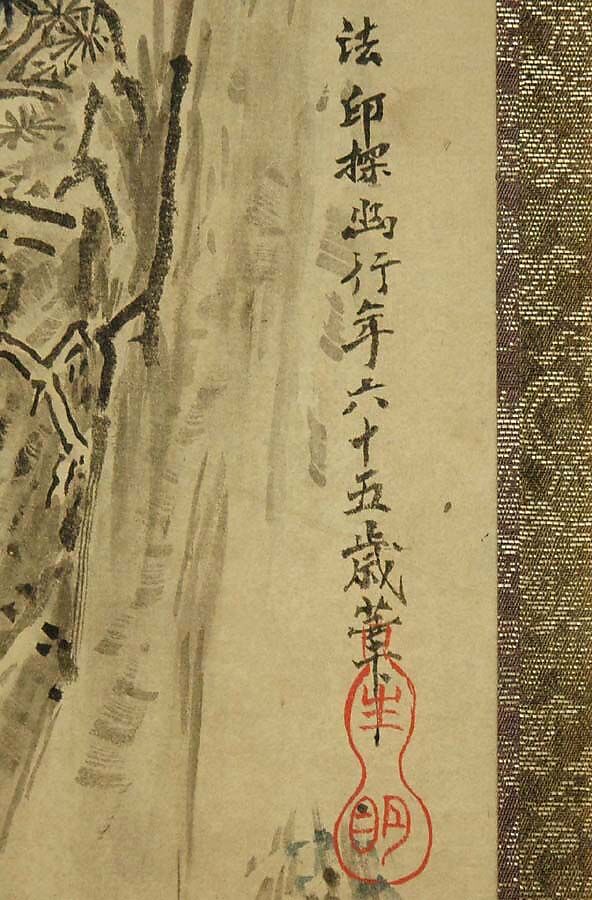 法印探幽行年六十五歳筆
生明